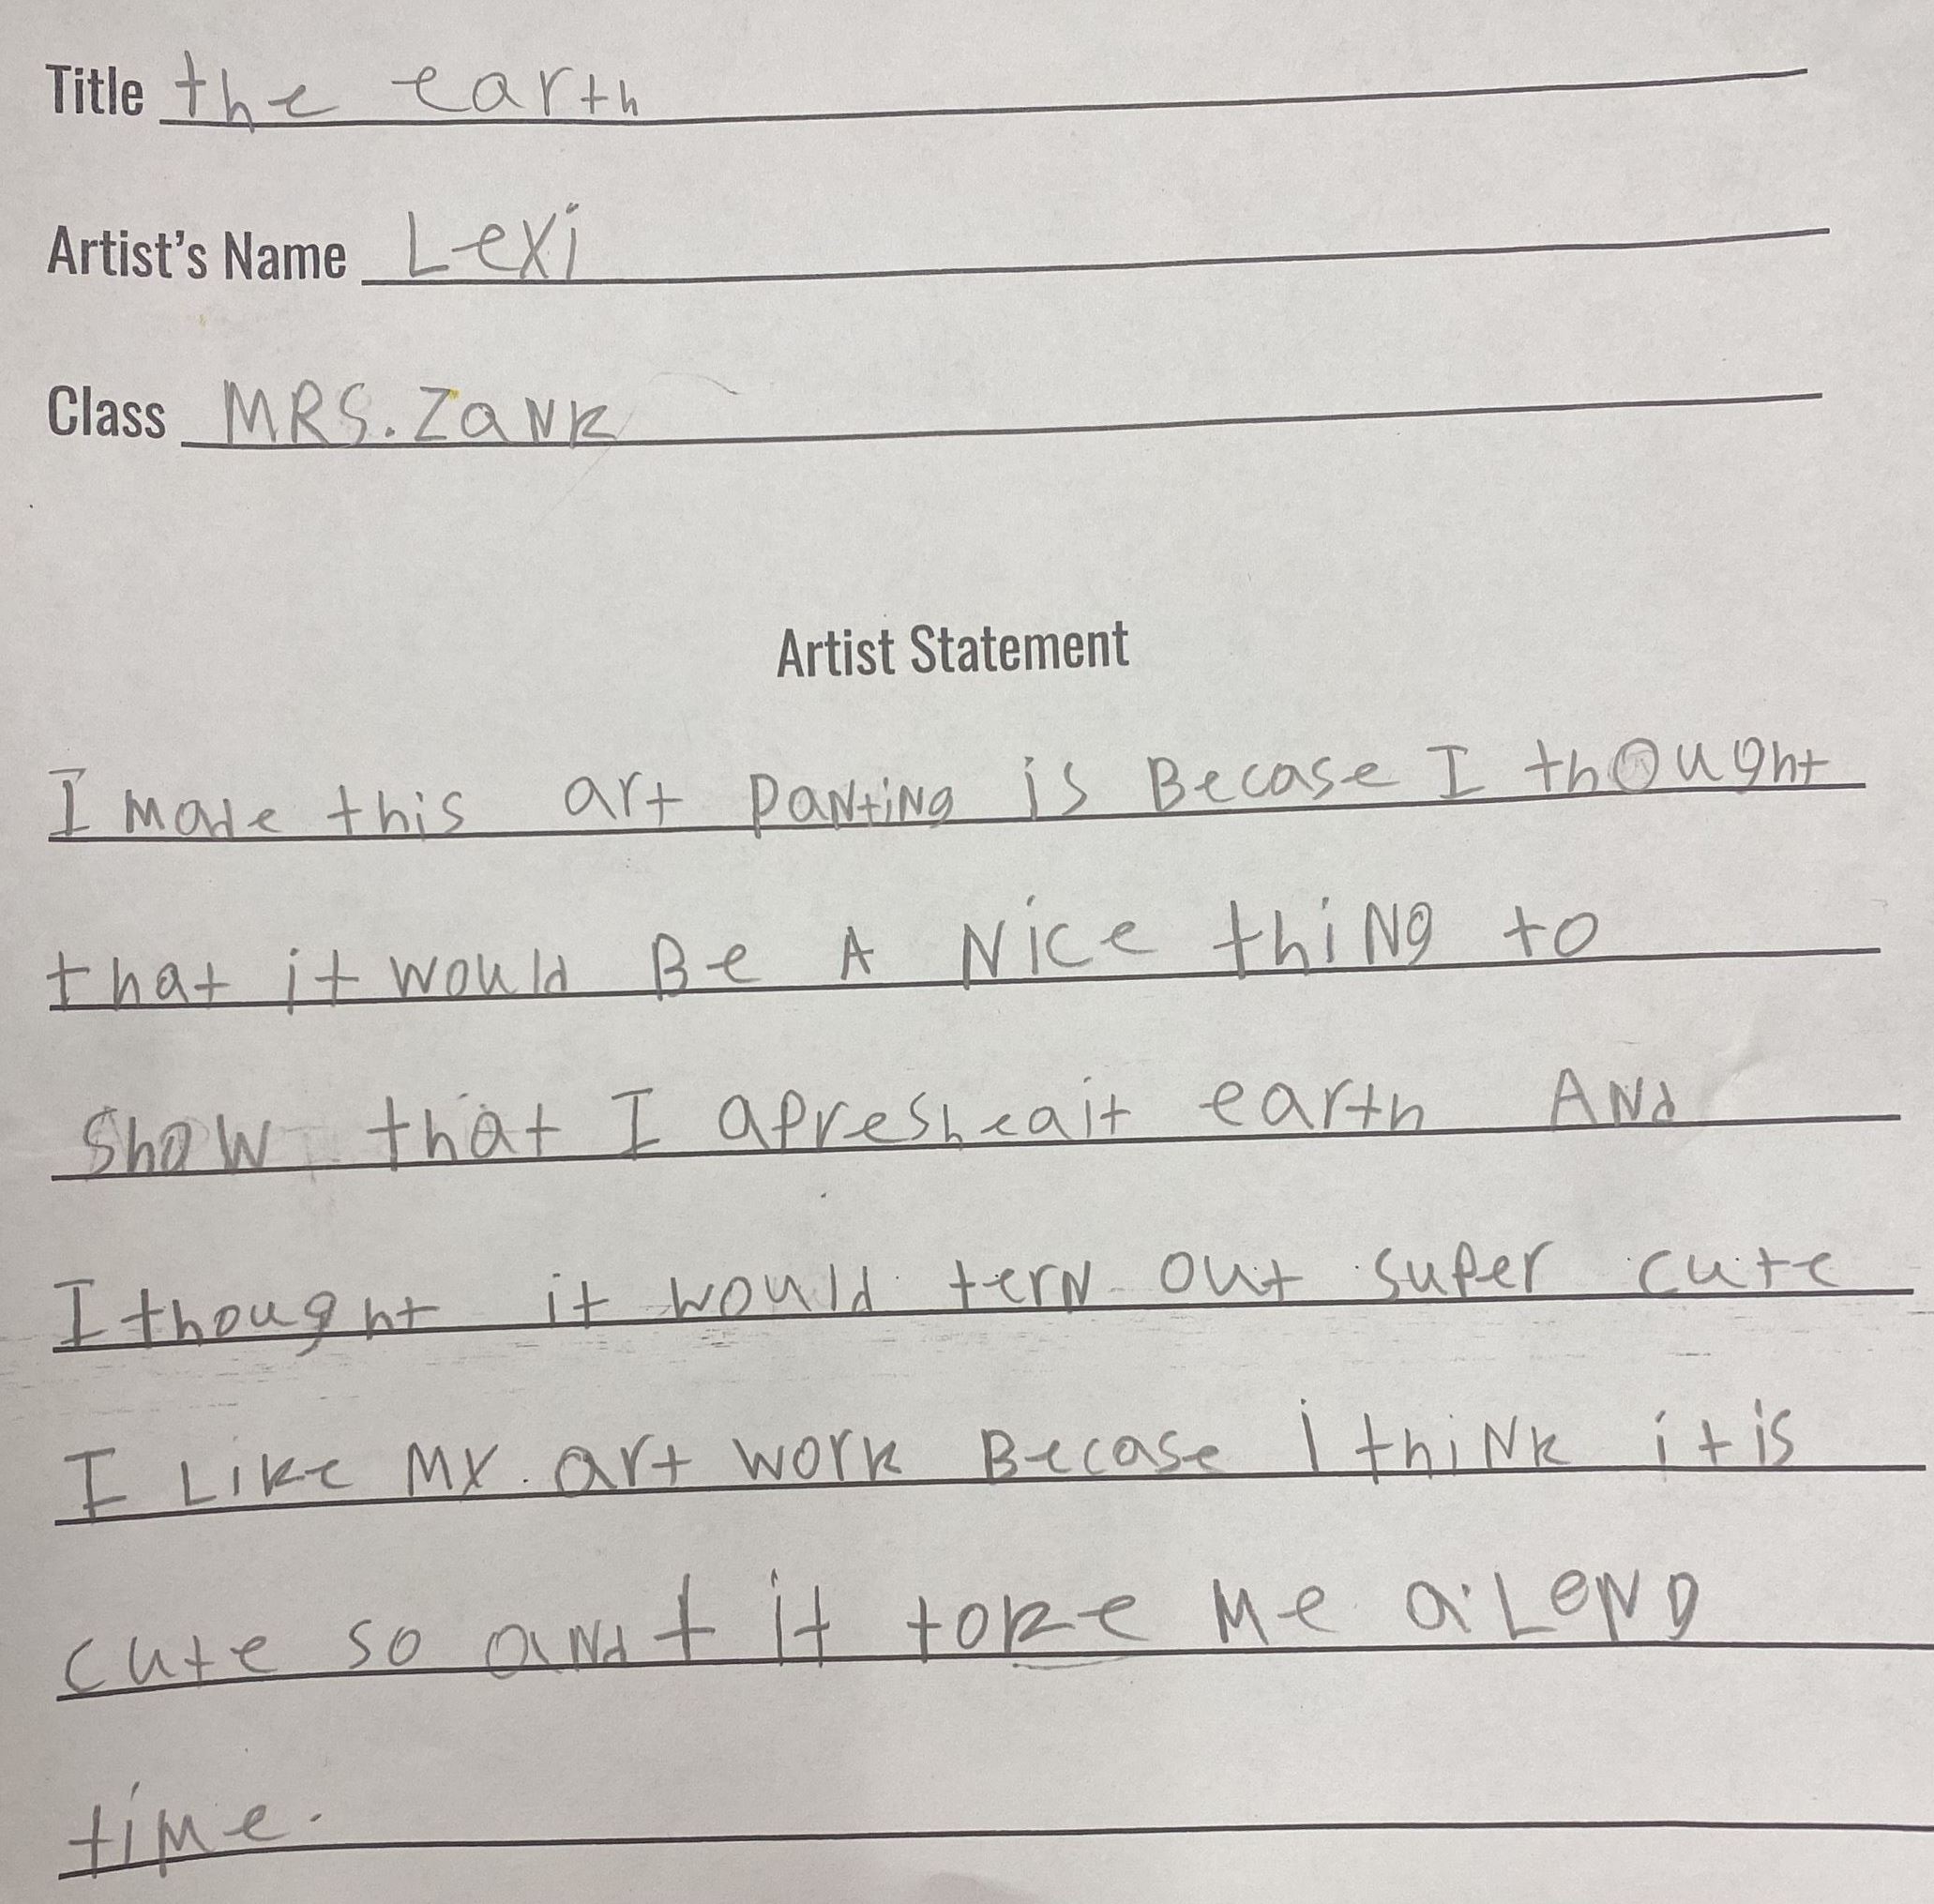 Title the earth
Artist's Name Lexi
Class MRS. ZaNK
Artist Statement
I made this art PaNtiNg is Becase I thought
that it would Be A Nice thiNg to
Show that I apresheait earth ANd
I thought it would terN out super cute
I Like MY art work Becase i thiNk it is
cute so aNd t it toke Me a LeNg
tiMe.